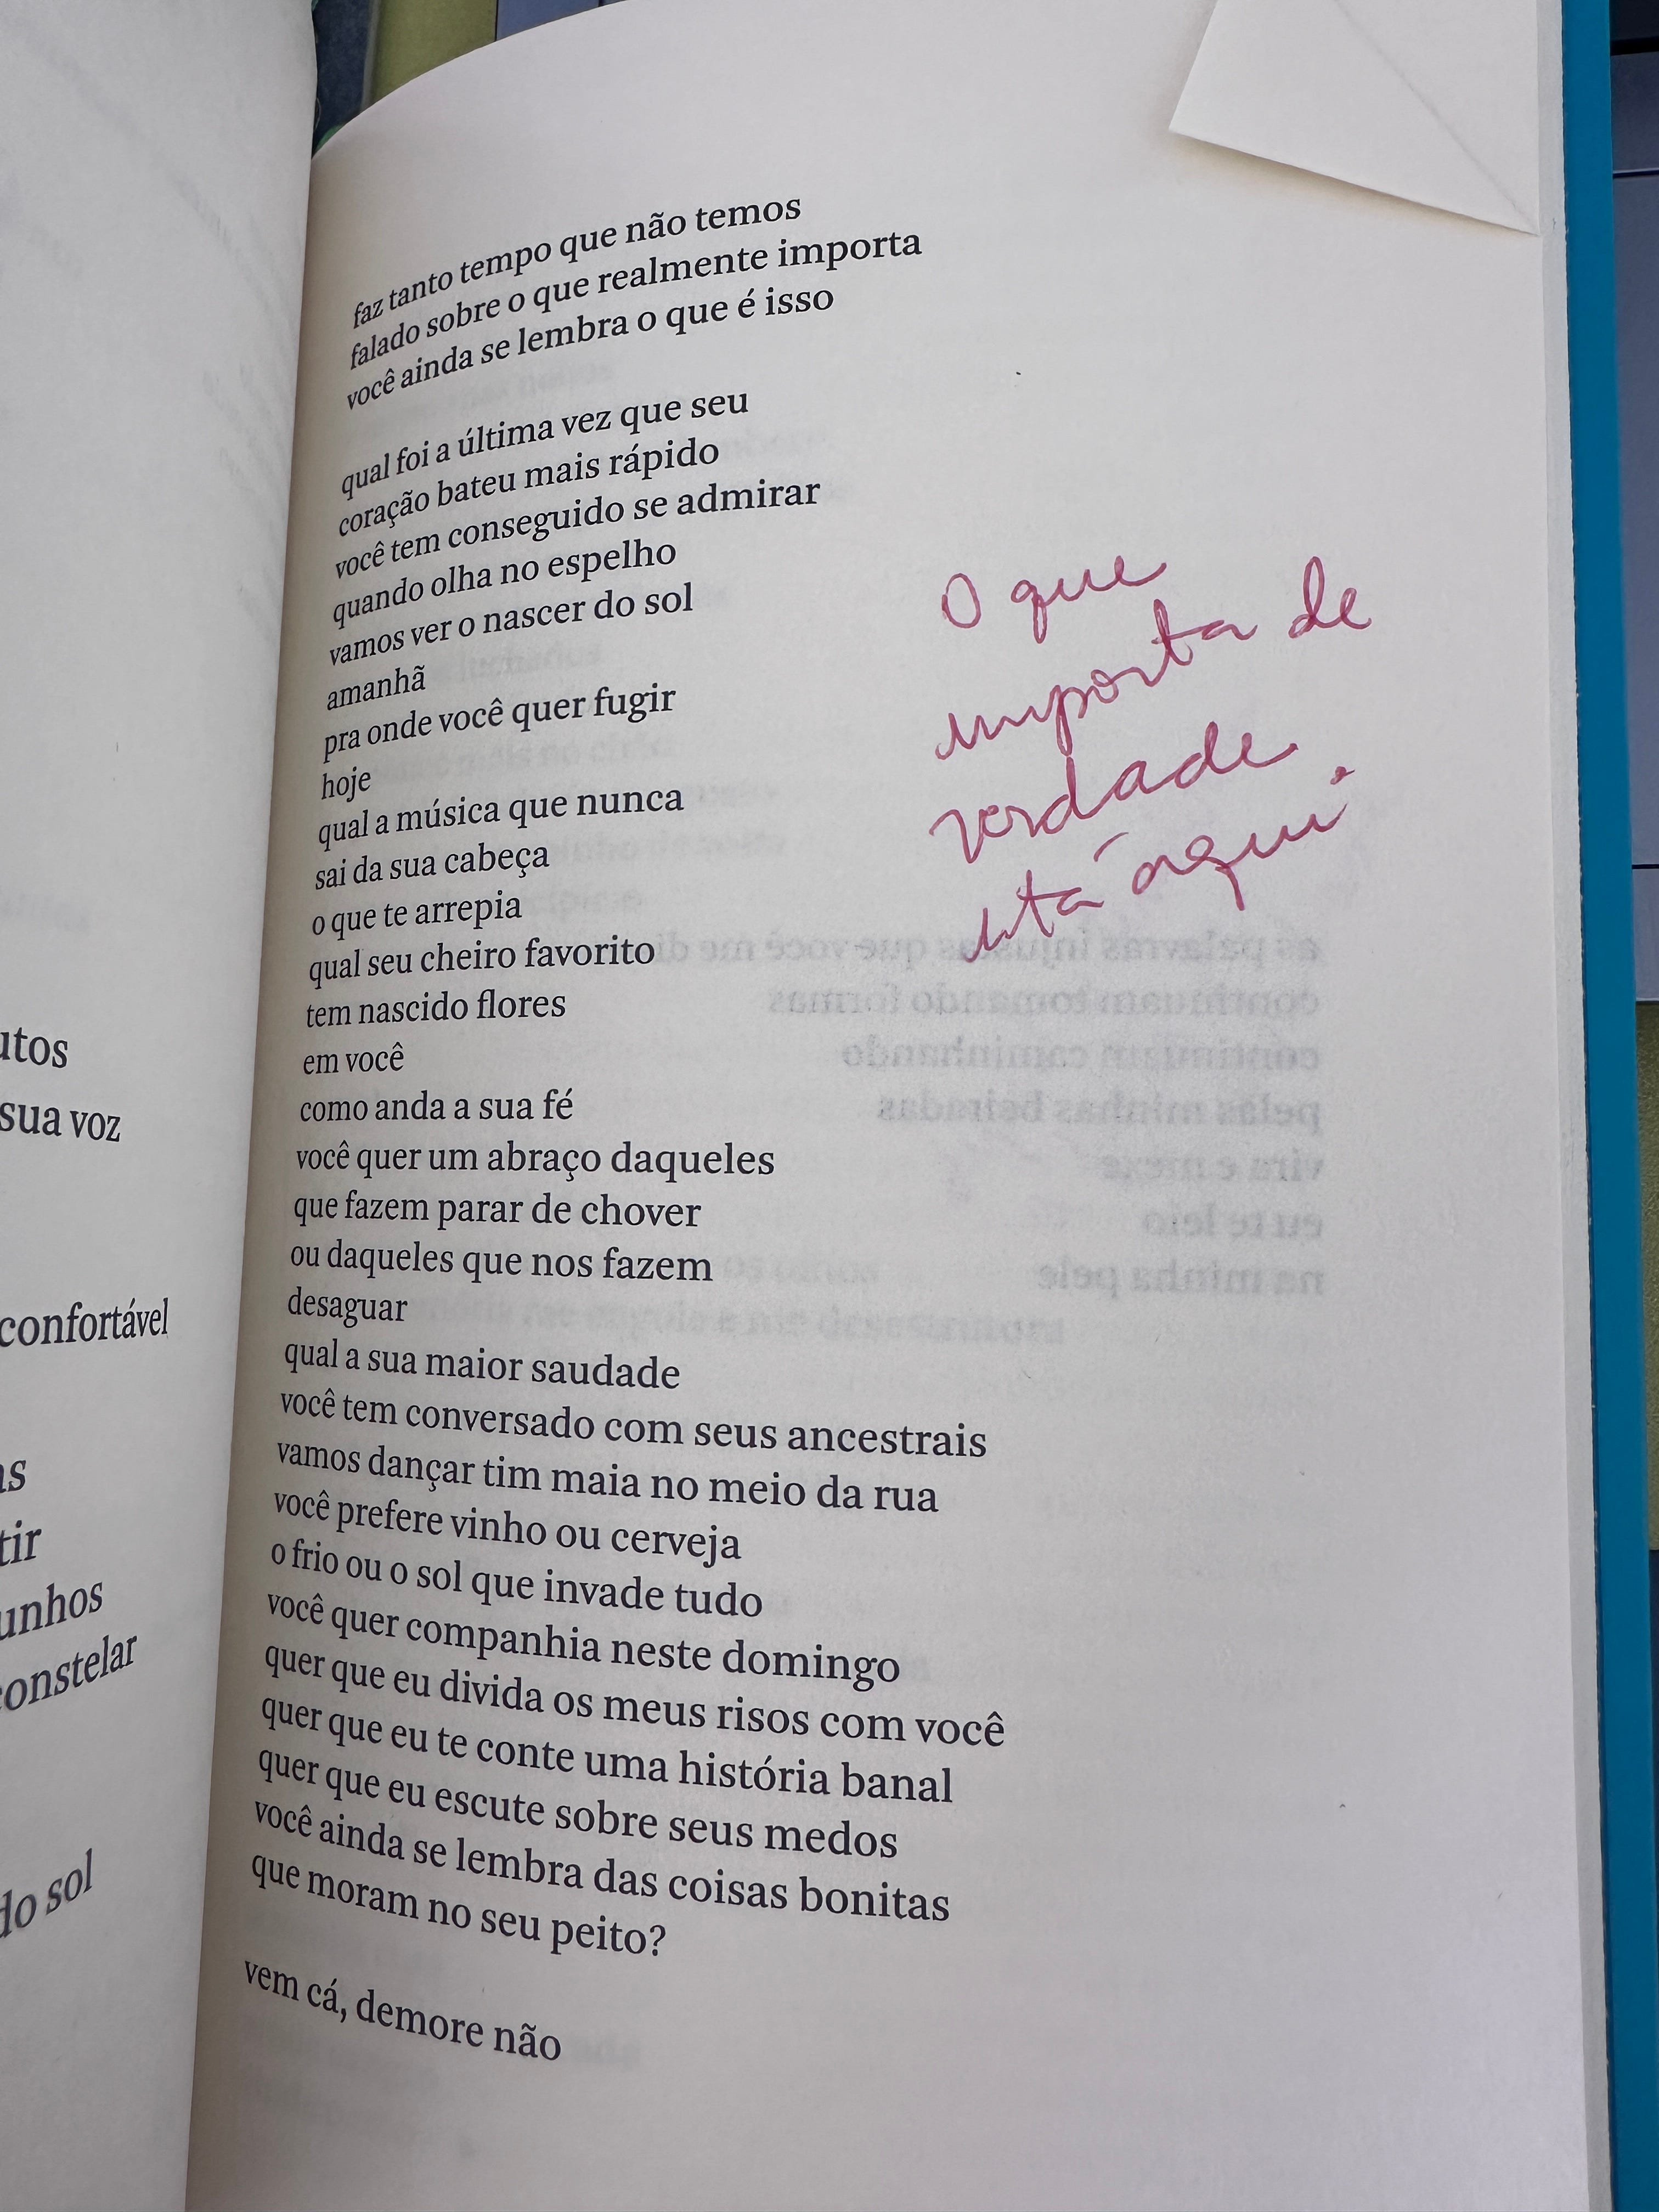 utos
sua voz
confortável
as
tir
unhos
constelar
do sol
faz tanto tempo que não temos
falado sobre o que realmente importa
você ainda se lembra o que é isso
qual foi a última vez que seu
coração bateu mais rápido
você tem conseguido se admirar
quando olha no espelho
vamos ver o nascer do sol
amanhã
pra onde você quer fugir
hoje
qual a música que nunca
sai da sua cabeça
o que te arrepia
qual seu cheiro favorito
tem nascido flores
em você
como anda a sua fé
você quer um abraço daqueles
que fazem parar de chover
ou daqueles que nos fazem
desaguar
qual a sua maior saudade
você tem conversado com seus ancestrais
vamos dançar tim maia no meio da rua
você prefere vinho ou cerveja
o frio ou o sol que invade tudo
você quer companhia neste domingo
quer que eu divida os meus risos com você
quer que eu te conte uma história banal
quer que eu escute sobre seus medos
você ainda se lembra das coisas bonitas
que moram no seu peito?
vem cá, demore não
O que
importa de
verdade
está aqui.